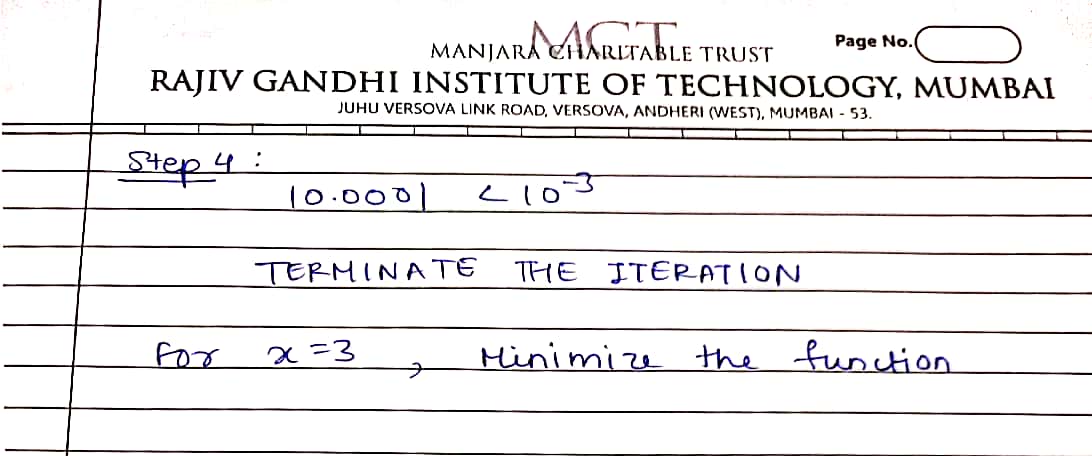 MCT
MANJARA CHARITABLE TRUST
Page No.
RAJIV GANDHI INSTITUTE OF TECHNOLOGY, MUMBAI
JUHU VERSOVA LINK ROAD, VERSOVA, ANDHERI (WEST), MUMBAI - 53.
Step 4 :
|0.000| < 10⁻³
TERMINATE THE ITERATION
For x = 3 , Minimize the function